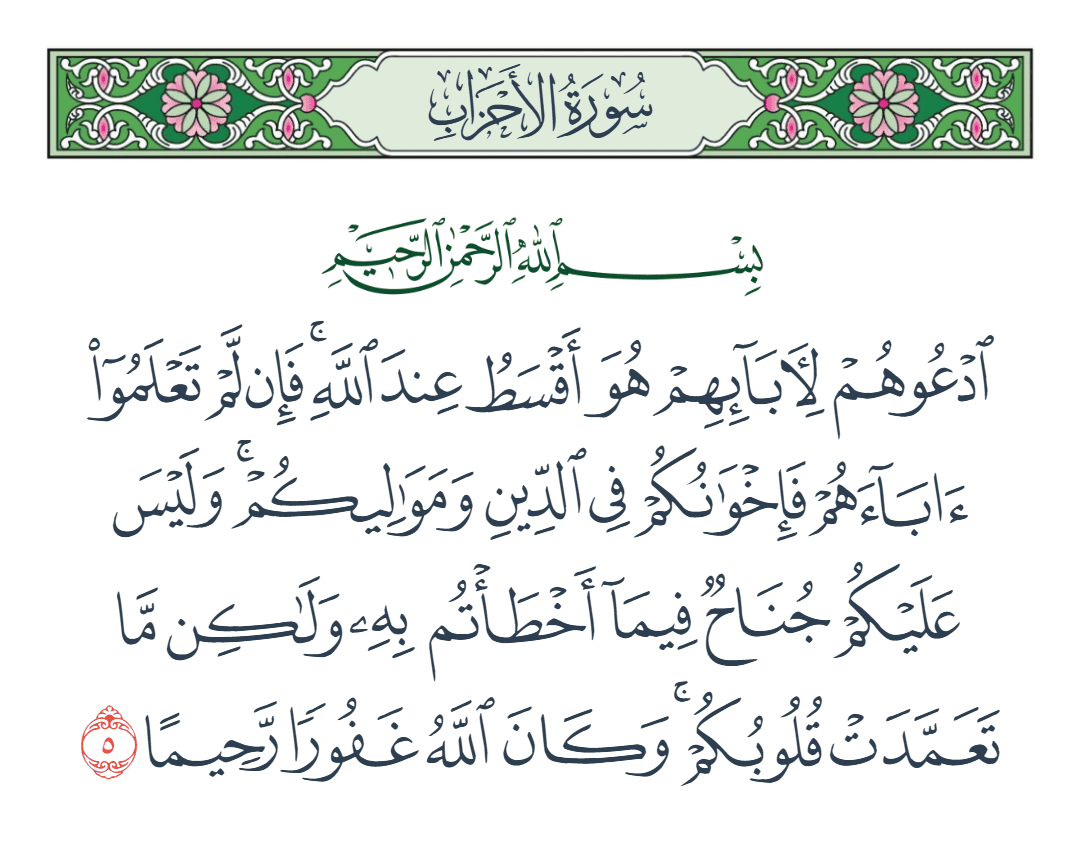 سُورَةُ الأَحْزَابِ
بِسْمِ ٱللَّهِ ٱلرَّحْمَٰنِ ٱلرَّحِيمِ
ٱدْعُوهُمْ لِأَبَآئِهِمْ هُوَ أَقْسَطُ عِندَ ٱللَّهِ ۚ فَإِن لَّمْ تَعْلَمُوٓا۟
ءَابَآءَهُمْ فَإِخْوَٰنُكُمْ فِى ٱلدِّينِ وَمَوَٰلِيكُمْ ۚ وَلَيْسَ
عَلَيْكُمْ جُنَاحٌ فِيمَآ أَخْطَأْتُم بِهِۦ وَلَٰكِن مَّا
تَعَمَّدَتْ قُلُوبُكُمْ ۚ وَكَانَ ٱللَّهُ غَفُورًا رَّحِيمًا ٥